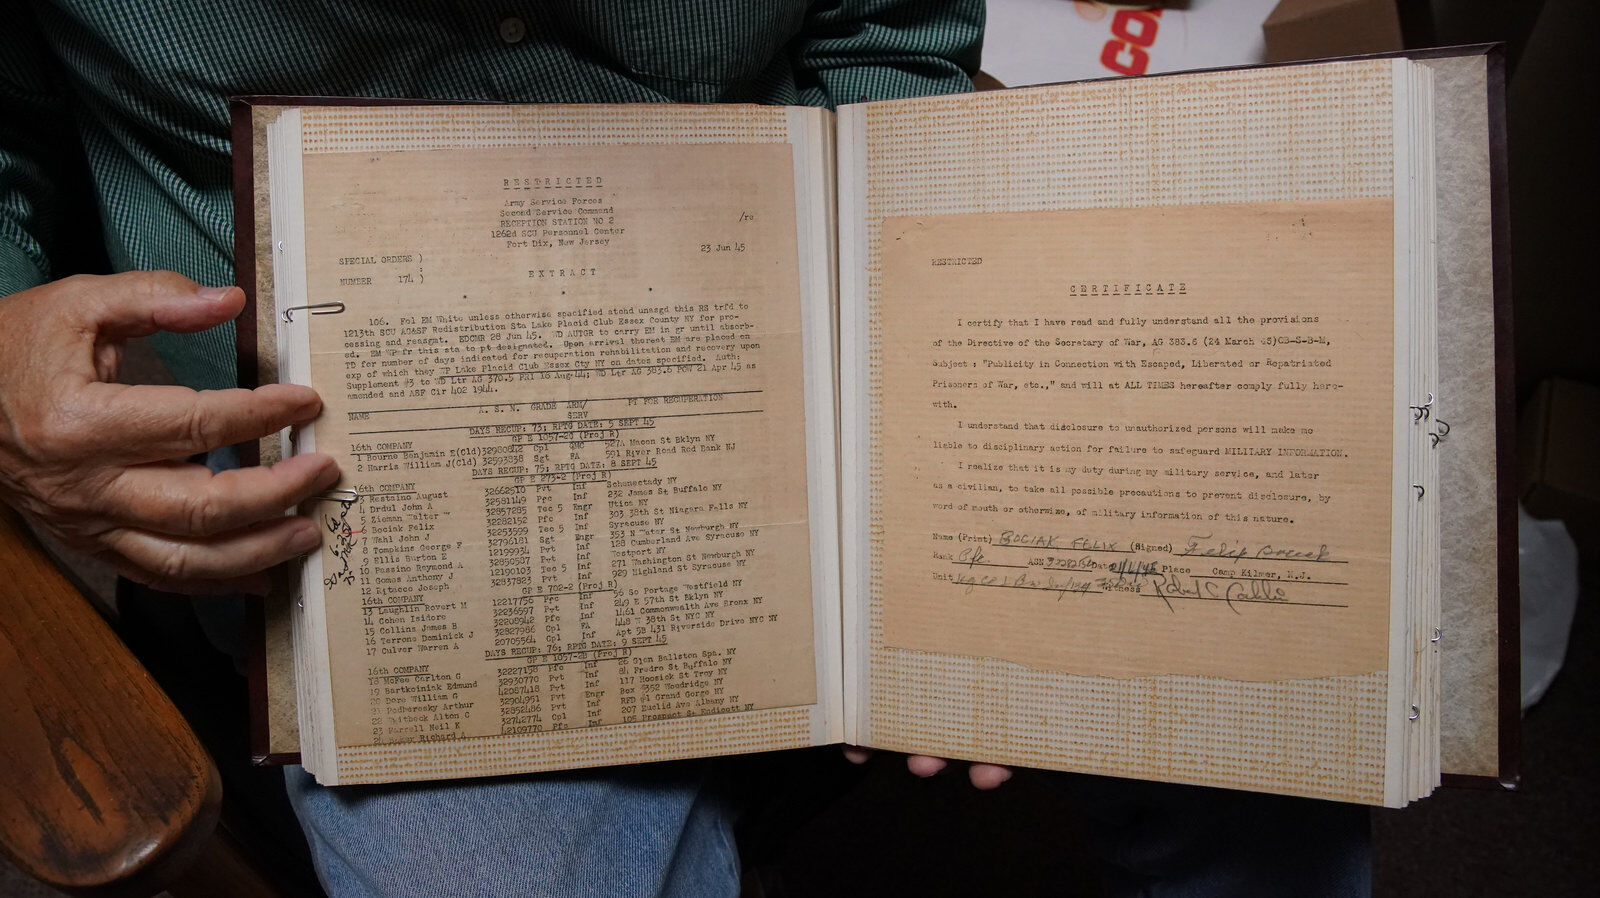 CO
RESTRICTED
Army Service Forces
Second Service Command
RECEPTION STATION NO 2
/re
1262d SCU Personnel Center
Fort Dix, New Jersey
23 Jun 45
SPECIAL ORDERS )
:
NUMBER 174 )
EXTRACT
* * *
106. Fol EM White unless otherwise specified atchd unasgd this RS trfd to
1213th SCU AG&SF Redistribution Sta Lake Placid Club Essex County NY for pro-
cessing and reasgmt. EDCMR 28 Jun 45. WD AUTGR to carry EM in gr until absorb-
ed. EM WP fr this sta to pt designated. Upon arrival thereat EM are placed on
TD for number of days indicated for recuperation rehabilitation and recovery upon
exp of which they WP Lake Placid Club Essex Cty NY on dates specified. Auth:
Supplement #3 to WD Ltr AG 370.5 PRI 16 Aug 44; WD Ltr AG 383.6 POW 21 Apr 45 as
amended and ASF Cir 402 1944.
NAME A. S. N. GRADE ARM/ PT FOR RECUPERATION
SERV
DAYS RECUP: 73; RPTG DATE: 5 SEPT 45
16th COMPANY GP E 1057-20 (Proj R)
1 Bourne Benjamin E(Cld) 32980842 Cpl QMC 527A Macon St Bklyn NY
2 Harris William J(Cld) 32593838 Sgt FA 591 River Road Red Bank NJ
DAYS RECUP: 75; RPTG DATE: 8 SEPT 45
16th COMPANY GP E 273-2 (Proj R)
3 Restaino August 32662510 Pvt Inf Schenectady NY
4 Drdul John A 32581149 Pfc Inf 232 James St Buffalo NY
5 Zieman Walter 32857285 Tec 5 Engr Utica NY
6 Bociak Felix 32282152 Pfc Inf 303 38th St Niagara Falls NY
7 Wahl John J 32253599 Tec 5 Inf Syracuse NY
8 Tompkins George F 32796181 Sgt Engr 353 N Water St Newburgh NY
9 Ellis Burton E 12199934 Pvt Inf 128 Cumberland Ave Syracuse NY
10 Passino Raymond A 32850587 Pvt Inf Westport NY
11 Gomes Anthony J 12190103 Tec 5 Inf 271 Washington St Newburgh NY
12 Ritacco Joseph 32837823 Pvt Inf 929 Highland St Syracuse NY
16th COMPANY GP E 702-2 (Proj R)
13 Laughlin Rovert M 12217756 Pfc Inf 56 So Portage Westfield NY
14 Cohen Isidore 32236597 Pvt Inf 249 E 57th St Bklyn NY
15 Collins James B 32208942 Pfc Inf 1461 Commonwealth Ave Bronx NY
16 Terrone Dominick J 32827986 Cpl FA 448 W 38th St NYC NY
17 Culver Warren A 20705564 Cpl Inf Apt 5B 431 Riverside Drive NYC NY
DAYS RECUP: 76; RPTG DATE: 9 SEPT 45
16th COMPANY GP E 1057-2B (Proj R)
18 McFee Carlton G 32227158 Pfc Inf 26 Glen Ballston Spa. NY
19 Bartkoiniak Edmund 32930770 Pvt Inf 84 Fredro St Buffalo NY
20 Dore William G 42087418 Pvt Inf 117 Hoosick St Troy NY
21 Podberesky Arthur 32904951 Pvt Engr Box #352 Woodridge NY
22 Whitbeck Alton C 32852486 Pvt Inf RFD #1 Grand Gorge NY
23 Farrell Neil K 32742774 Cpl Inf 207 Euclid Ave Albany NY
24 Richard A 42109770 Pfc Inf 105 Prospect St Endicott NY
RESTRICTED
CERTIFICATE
I certify that I have read and fully understand all the provisions
of the Directive of the Secretary of War, AG 383.6 (24 March 45)OB-S-B-M,
Subject: "Publicity in Connection with Escaped, Liberated or Repatriated
Prisoners of War, etc.," and will at ALL TIMES hereafter comply fully here-
with.
I understand that disclosure to unauthorized persons will make me
liable to disciplinary action for failure to safeguard MILITARY INFORMATION.
I realize that it is my duty during my military service, and later
as a civilian, to take all possible precautions to prevent disclosure, by
word of mouth or otherwise, of military information of this nature.
Name (Print) BOCIAK FELIX (Signed) Felix Bociak
Rank Pfc. ASN 32282152 Date Place Camp Kilmer, N.J.
Unit Witness Robert C